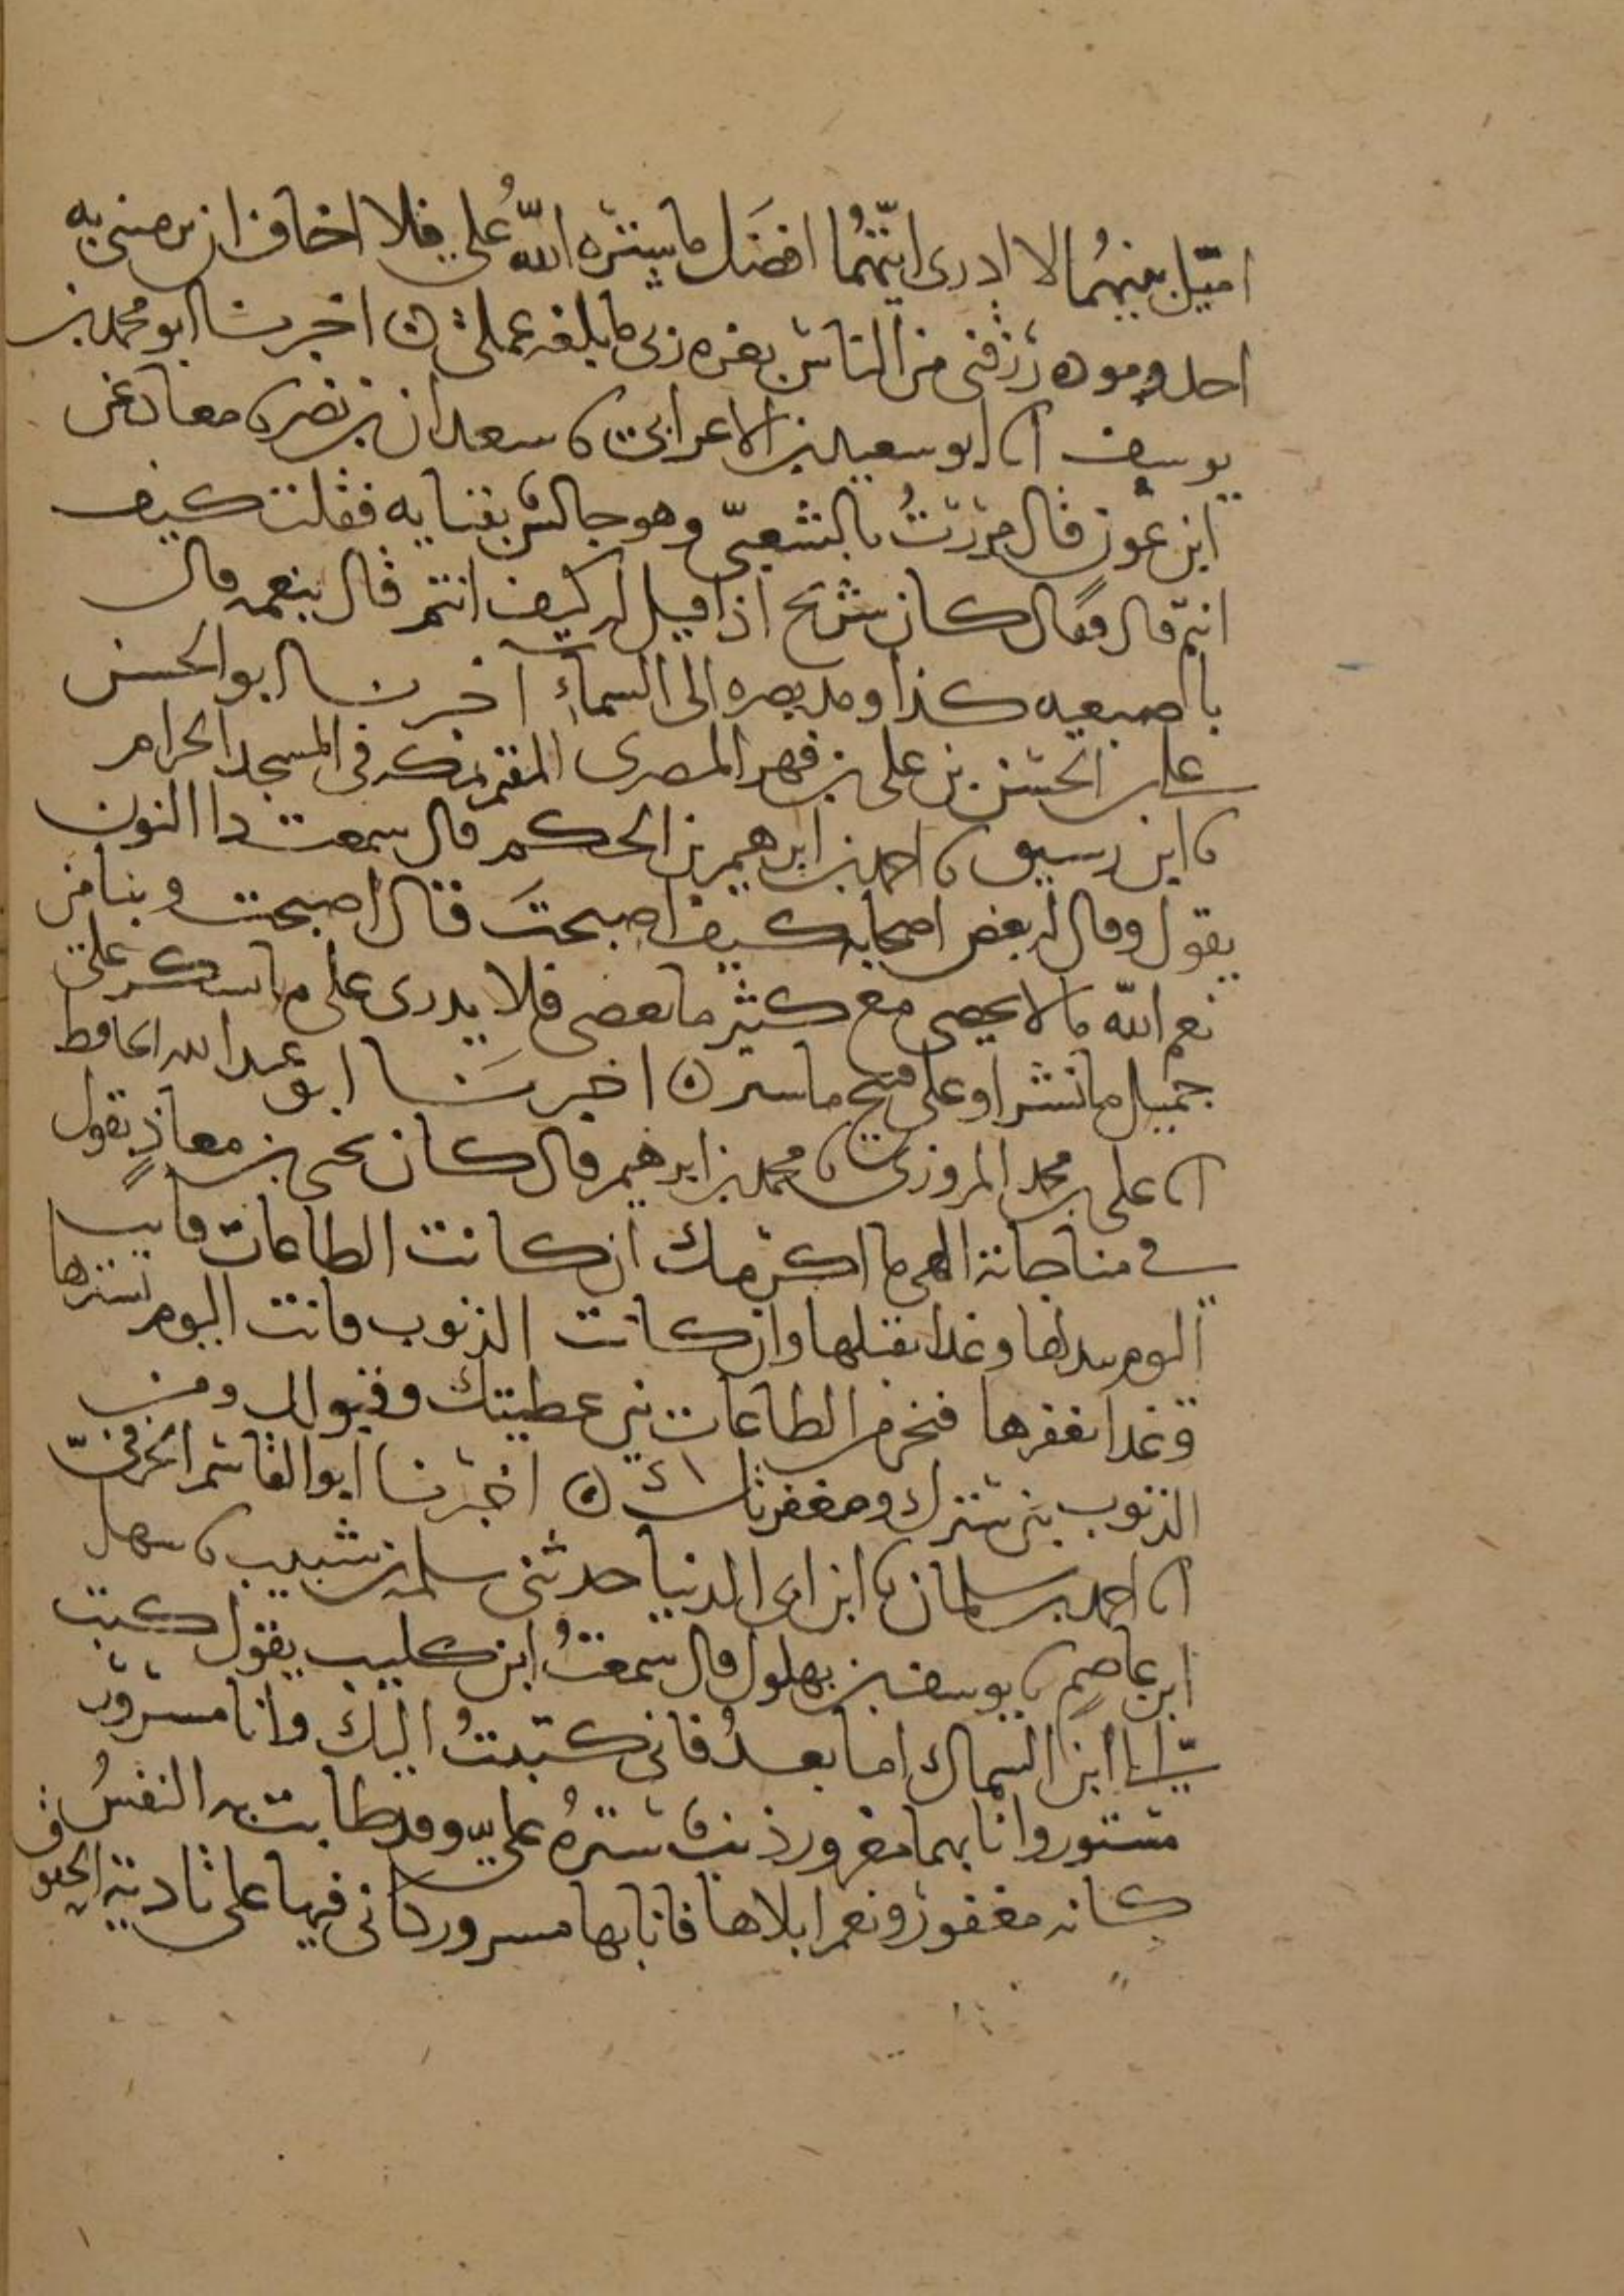 اميّل بينهُما لا ادرى ايّتهُما افضَل ما ستره اللّهُ على فلا اخاف ان يرمينى به
احد ومودة رزقنى من الناس بعزه ربى ما بلغه عملى ه اخبرنا ابو محمد بن
يوسف اا ابو سعيد بن الاعرابى ا سعدان بن نصر ا معاد عن
ابن عون قال مررتُ بالشعبىّ وهو جالس بفنايه فقلت كيف
انتم قال فقال كان شريح اذا قيل له كيف انتم قال بنعمه وقال
باصبعيه كذا ومد بصره الى السماء اخبرنا ابو الحسن
على بن الحسن بن على بن فهر المصرى المقيم بمكه فى المسجد الحرام
ا ابن رسيق ا احمد بن ابرهيم بن الحكم قال سمعت دا النون
يقول وقال له بعض اصحابه كيف اصبحتَ قال اصبحت وبنا من
نعم اللّه ما لا يحصى مع كثير ما نعصى فلا يدرى على ما نسكر على
جميل ما نشر او على قبيح ما ستر ه اخبرنا ابو عبد الله الحافظ
اا على بن محمد المروزى ا محمد بن ابرهيم قال كان يحيى بن معاذٍ يقول
فى مناجاته الهى ما اكرمك ان كانت الطاعات فانت
اليوم تبدلها وغدا تقبلها وان كانت الذنوب فانت اليوم تسترها
وغدا تغفرها فنحن من الطاعات بين عطيتك وقبولك ومن
الذنوب بين سترك ومغفرتك ه اخبرنا ابو القاسم الحرفىّ
اا احمد بن سلمان ا ابن ابى الدنيا حدثنى سلمه بن شبيب ا سهل
ابن عاصم ا يوسف بن بهلول قال سمعتُ ابن كليب يقول كتب
الىّ ابن السماك اما بعدُ فانى كتبتُ اليك وانا مسرور
مستور وانا بهما مغرور ذنب سترهُ علىّ وقد طابت به النفسُ
كانه مغفور ونعم ابلاها فانا بها مسرور كانى فيها على تادية الحقوق